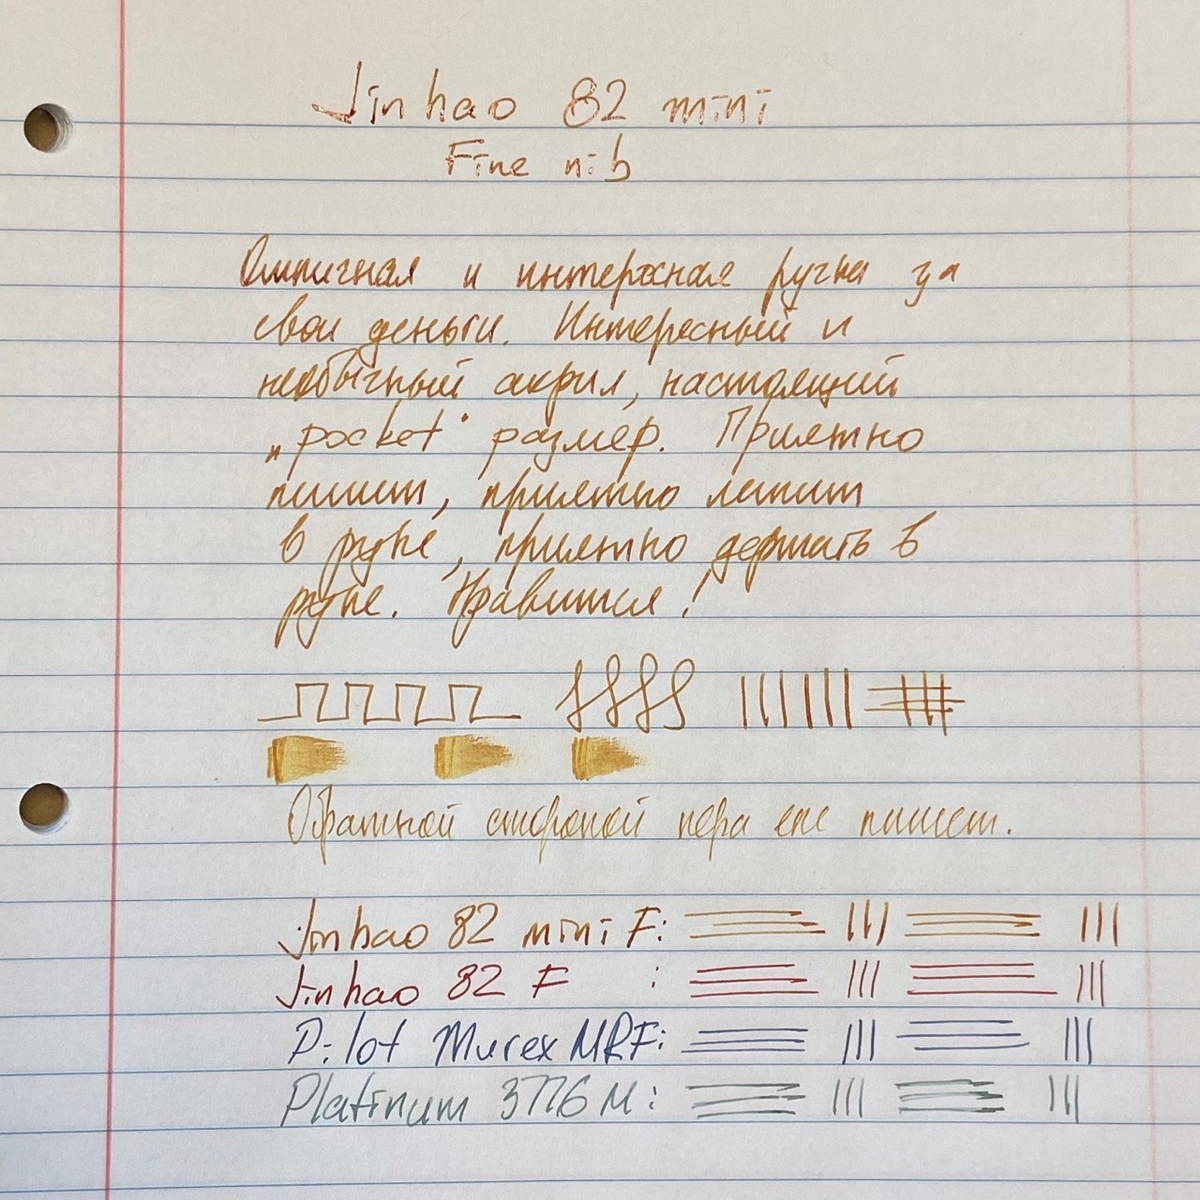 Jinhao 82 mini
Fine nib
Отличная и интересная ручка за
свои деньги. Интересный и
необычный акрил, настоящий
„pocket" размер. Приятно
пишет, приятно лежит
в руке, приятно держать в
руке. Нравится!
Обратной стороной пера еле пишет.
Jinhao 82 mini F:
Jinhao 82 F :
Pilot Murex MRF:
Platinum 3776 M: